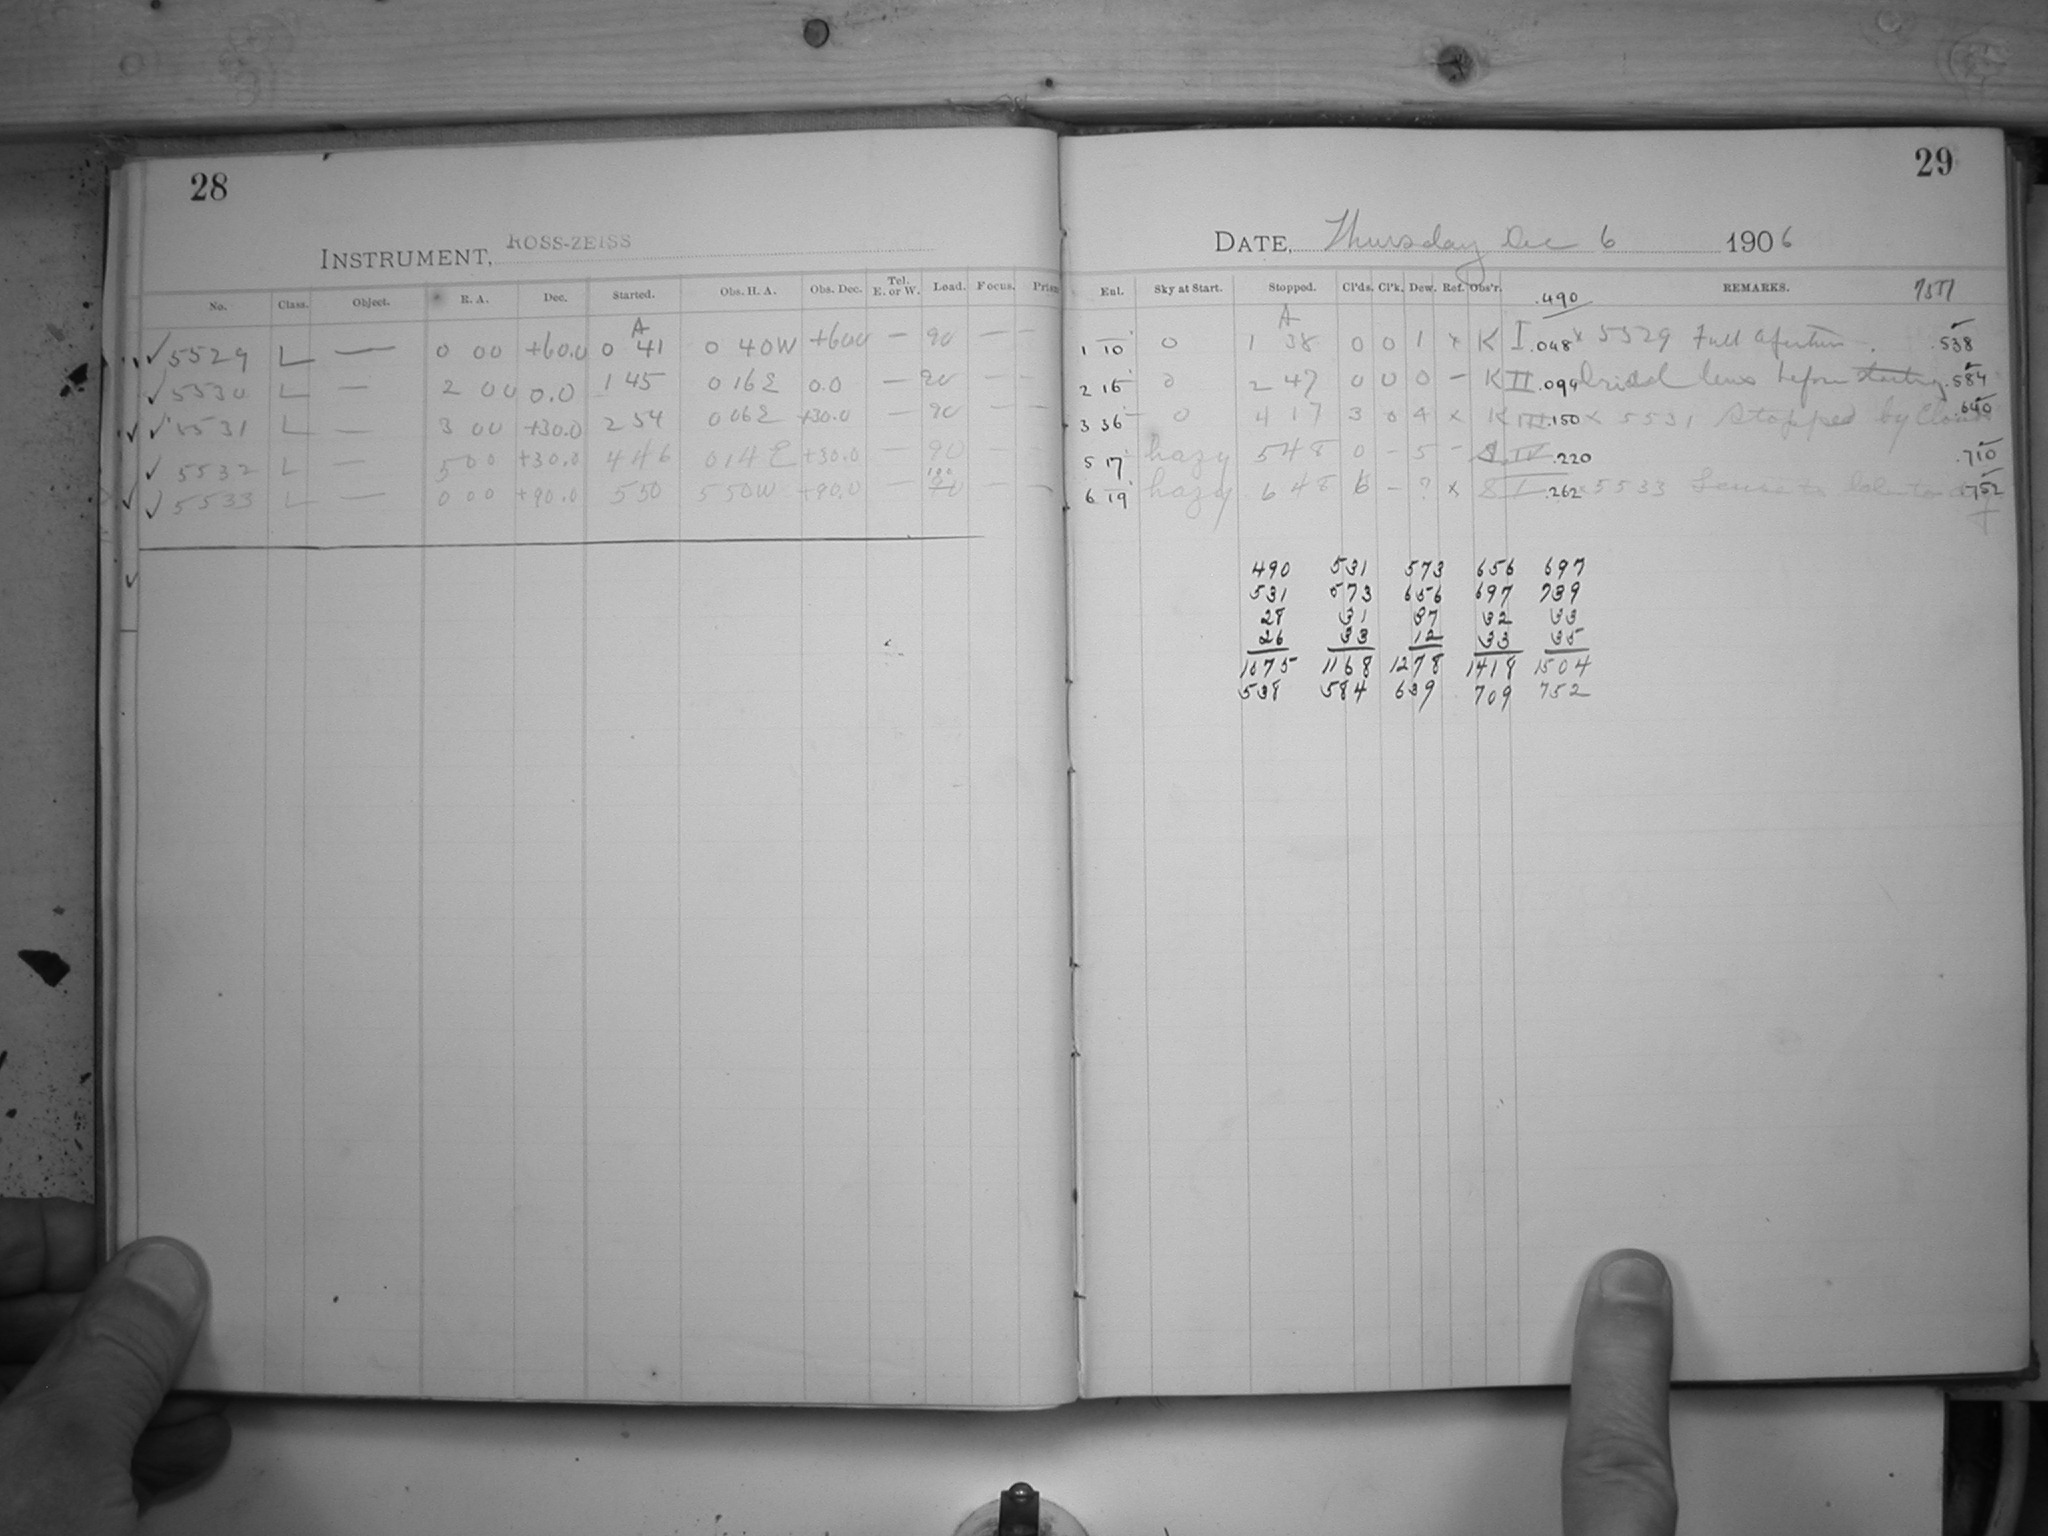 28
INSTRUMENT, ROSS-ZEISS
No. Class. Object. R. A. Dec. Started. Obs. H. A. Obs. Dec. Tel. E. or W. Load. Focus. Prism
A
✓ 5529 L — 0 00 +60.0 0 41 0 40W +60.0 — 90 — —
✓ 5530 L — 2 00 0.0 1 45 0 16E 0.0 — 90 — —
✓ 5531 L — 3 00 +30.0 2 54 0 06E +30.0 — 90 — —
✓ 5532 L — 5 00 +30.0 4 46 0 14E +30.0 — 90 — —
✓ 5533 L — 0 00 +90.0 5 50 5 50W +90.0 — — —
29
DATE, Thursday Dec 6 1906
Ent. Sky at Start. Stopped. Cl'ds. Cl'k. Dew. Ref. Obs'r. .490 REMARKS.
A
1 10 0 1 38 0 0 1 x K I .048 x 5529 Full aperture. .538
2 16 0 2 47 0 0 0 – K II .094 lens before starting .584
3 36 0 4 17 3 0 4 x K III .150 x 5531 Stopped by Clouds .640
5 17 hazy 5 48 0 – 5 – S IV .220 .710
6 19 hazy 6 48 6 – ? x S I .262 x 5533 .752
490 531 573 656 697
531 573 656 697 739
28 31 37 32 33
26 33 12 33 35
1075 1168 1278 1418 1504
538 584 639 709 752